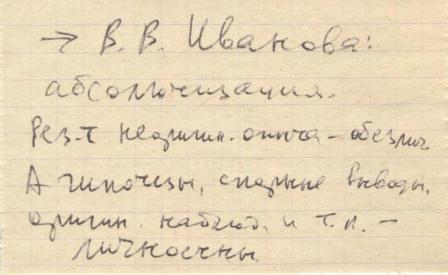 → В. В. Иванова:
абсолютизация.
Рез-т неоригин. опыта – обезлич
А гипотезы, спорные выводы,
оригин. наблюд. и т. п. –
личностны.